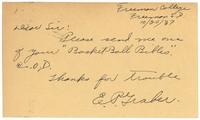 Freeman College
Freeman S.D.
10/30/37
Dear Sir:
Please send me one
of your "Basket Ball Bibles"
C.O.D.
Thanks for trouble
E.P. Graber